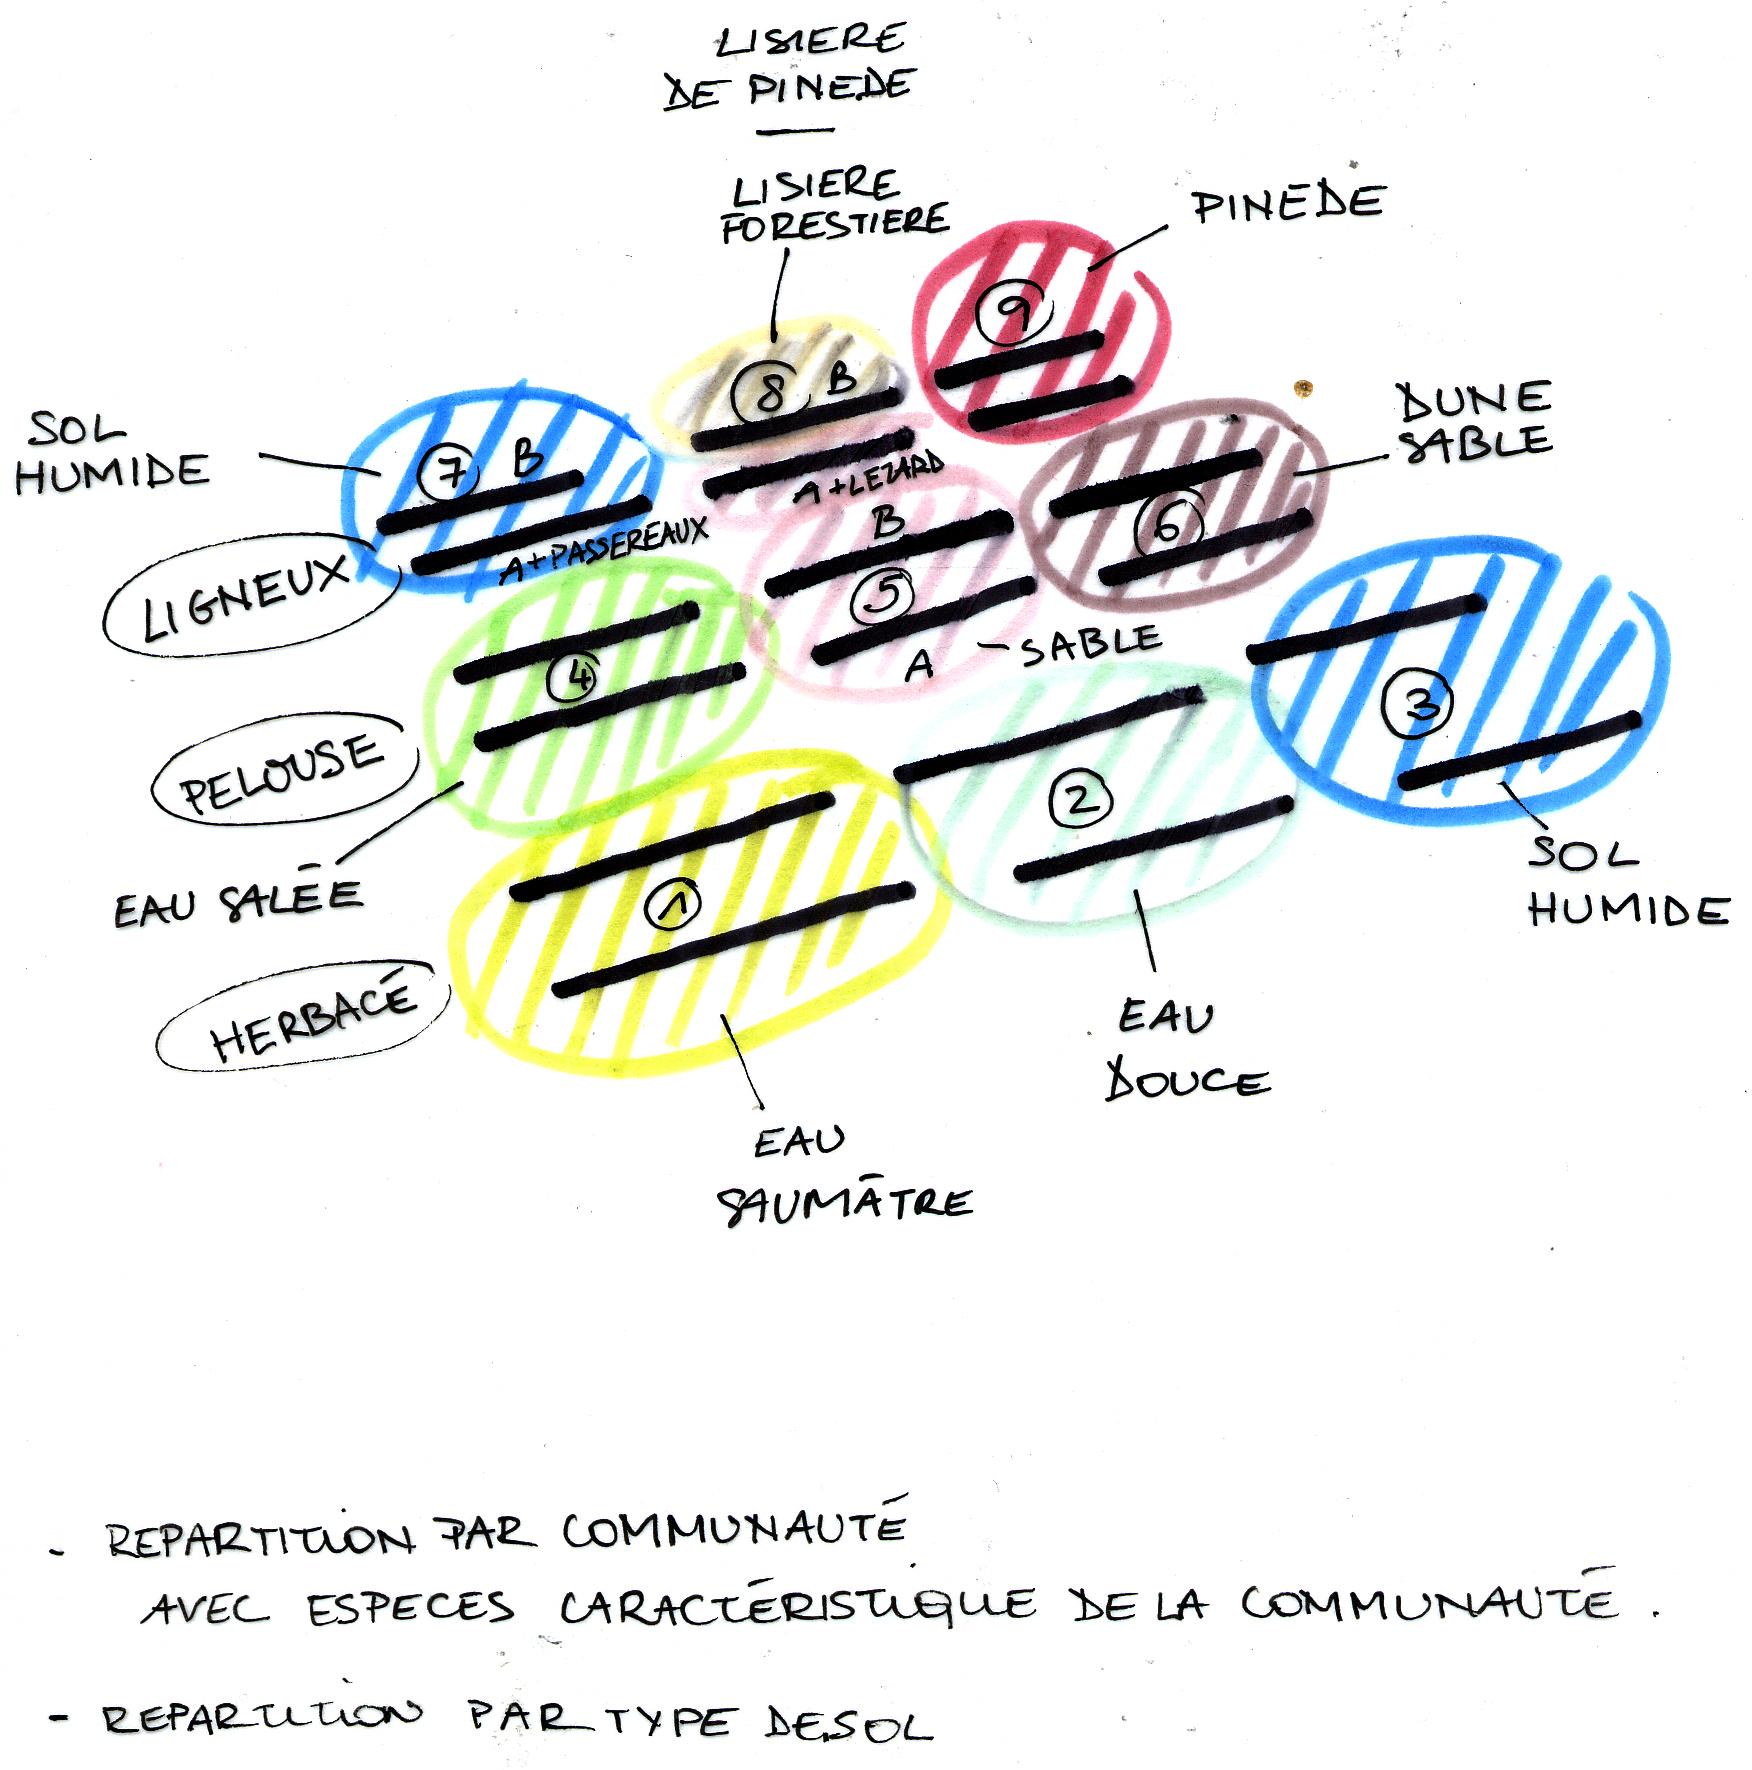 LISIERE
DE PINEDE
LISIERE
FORESTIERE
PINEDE
9
8 B
DUNE
SABLE
SOL
HUMIDE
7 B
A+LEZARD
B
6
A+PASSEREAUX
LIGNEUX
5
4
A - SABLE
3
PELOUSE
2
EAU SALÉE
1
SOL
HUMIDE
HERBACÉ
EAU
DOUCE
EAU
SAUMÂTRE
- REPARTITION PAR COMMUNAUTÉ
AVEC ESPECES CARACTÉRISTIQUE DE LA COMMUNAUTÉ.
- REPARTITION PAR TYPE DE SOL